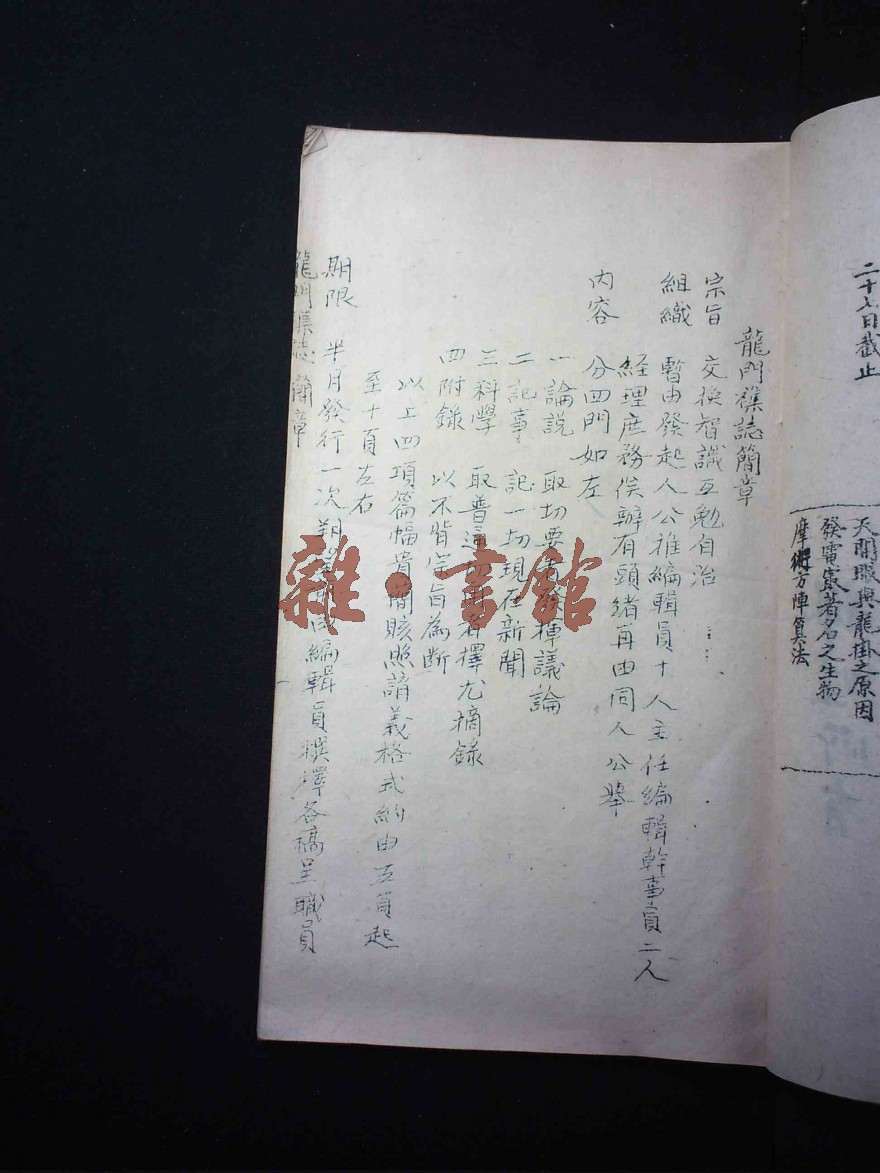 二十七日截止
天開眼與龍掛之原因
發電最著名之生物
摩術方陣算法
龍門襍誌簡章
宗旨 交換智識互勉自治
組織 暫由發起人公推編輯員十人主任編輯幹事員二人
經理庶務俟辦有頭緒再由同人公舉
內容 分四門如左
一論說 取切要者發揮議論
二記事 記一切現在新聞
三科學 取普通切用者擇尤摘錄
四附錄 以不背宗旨為斷
以上四項篇幅貴簡賅照講義格式約由五頁起
至十頁左右
期限 半月發行一次朔望 編輯員撰譯各稿呈職員
龍門襍誌 簡章
雜·書館